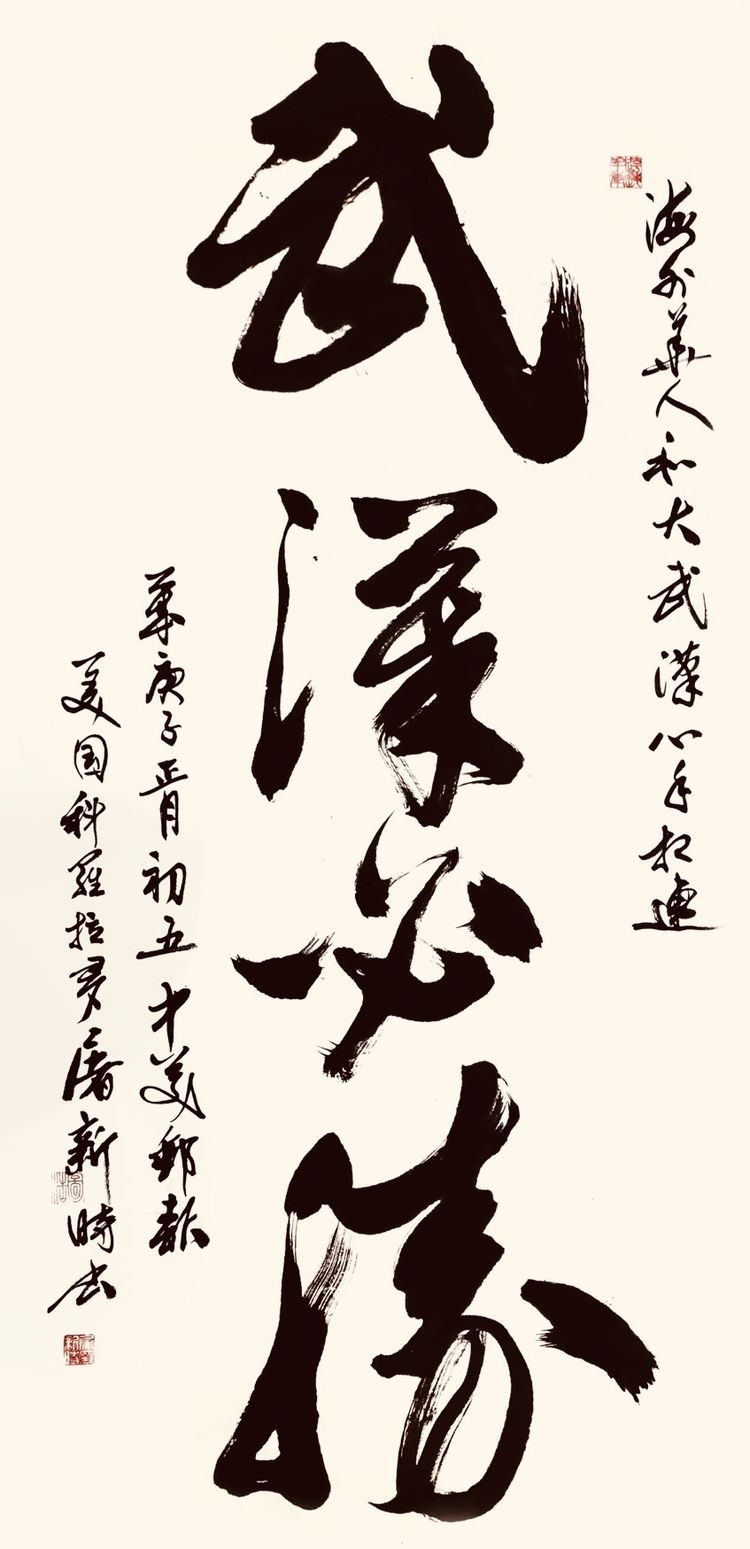 海外華人和大武漢心手相連
武漢必勝
庚子正月初五美郵報
美国科羅拉多屠新時书